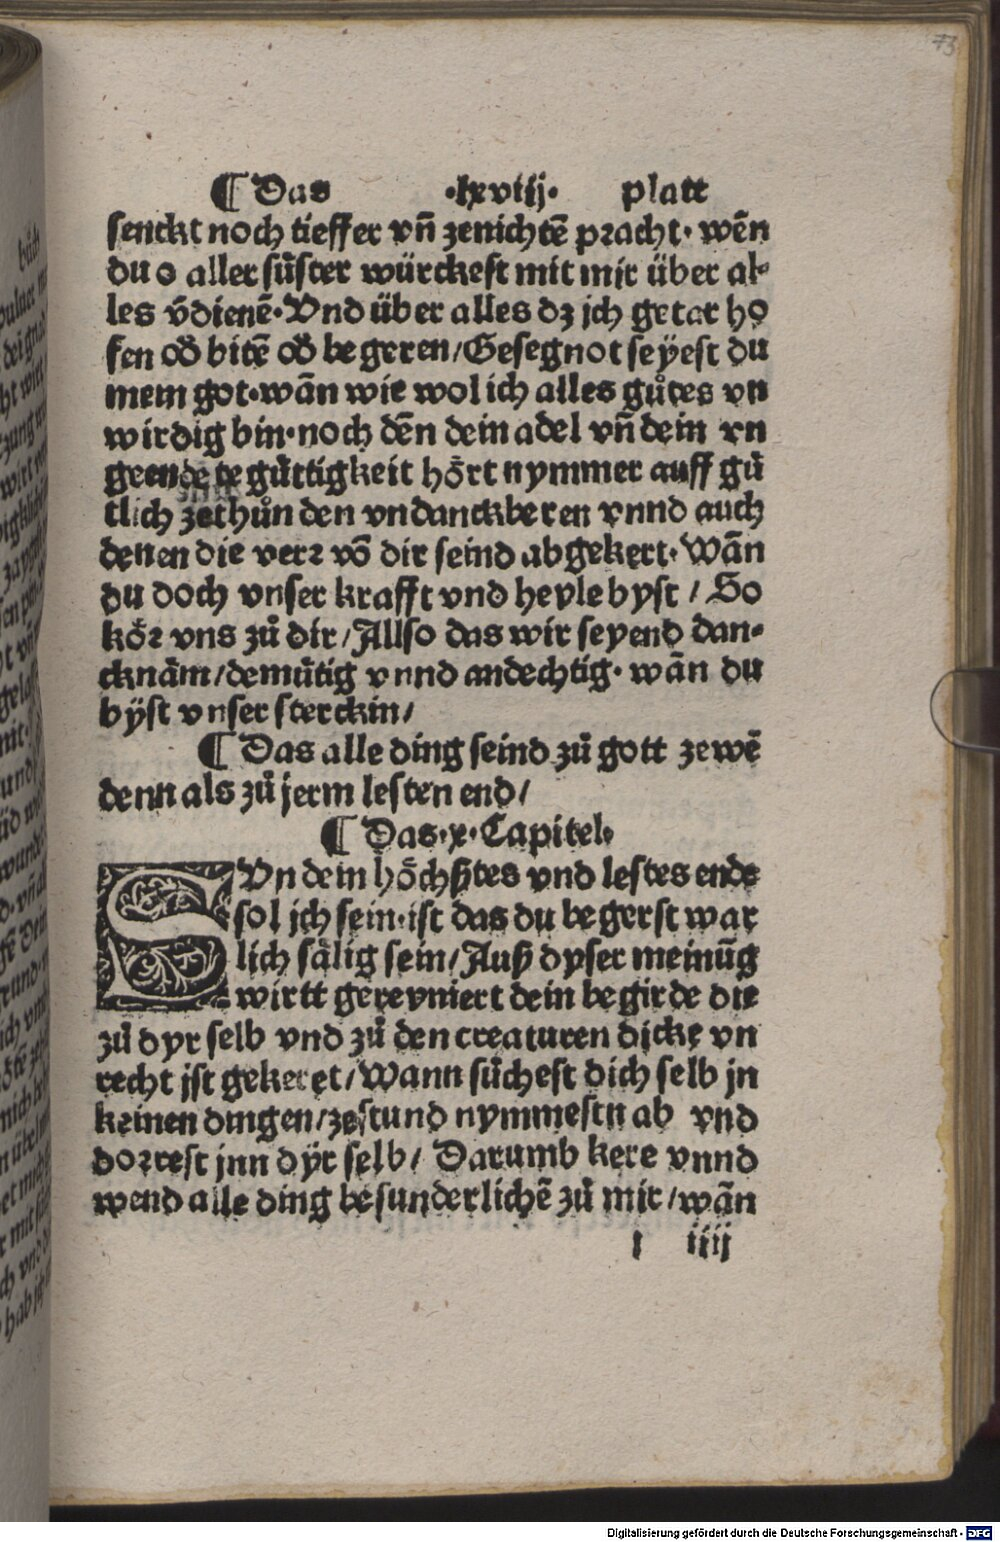 73
¶ Das ·lxviij· platt
senckt noch tieffer vñ zenichtē pracht· wēn
du o aller sůster würckest mit mir über al⸗
les v̄dienē· Vnd über alles dz jch getar ho
fen od̄ bitē od̄ begeren/Gesegnot seÿest du
mein got·wān wie wol ich alles gůtes vn
wirdig bin·noch dēn dein adel vñ dein vn
geendete gůttigkeit hört nymmer auff gů
tlich zethůn den vndanckberen vnnd auch
denen die verr vō dir seind abgekert· Wān
du doch vnser krafft vnd heyle byst / So
kör vns zů dir/Allso das wir seyend dan⸗
cknäm/demůtig vnnd andechtig· wān du
bÿst vnser sterckin/
¶ Das alle ding seind zů gott zewē
denn als zů jerm lesten end/
¶ Das·x·Capitel·
SVn dein höchstes vnd lestes ende
sol jch sein·ist das du begerst war
lich sälig sein/Auß dyser meinūg
wirtt gereyniert dein begirde die
zů dyr selb vnd zů den creaturen dicke vn
recht jst gekeret/Wann sůchest dich selb jn
keinen dingen/zestund nymmestu ab vnd
dorrest jnn dÿr selb/ Darumb kere vnnd
wend alle ding besunderlichē zů mir/wān
l iiij
Digitalisierung gefördert durch die Deutsche Forschungsgemeinschaft - DFG